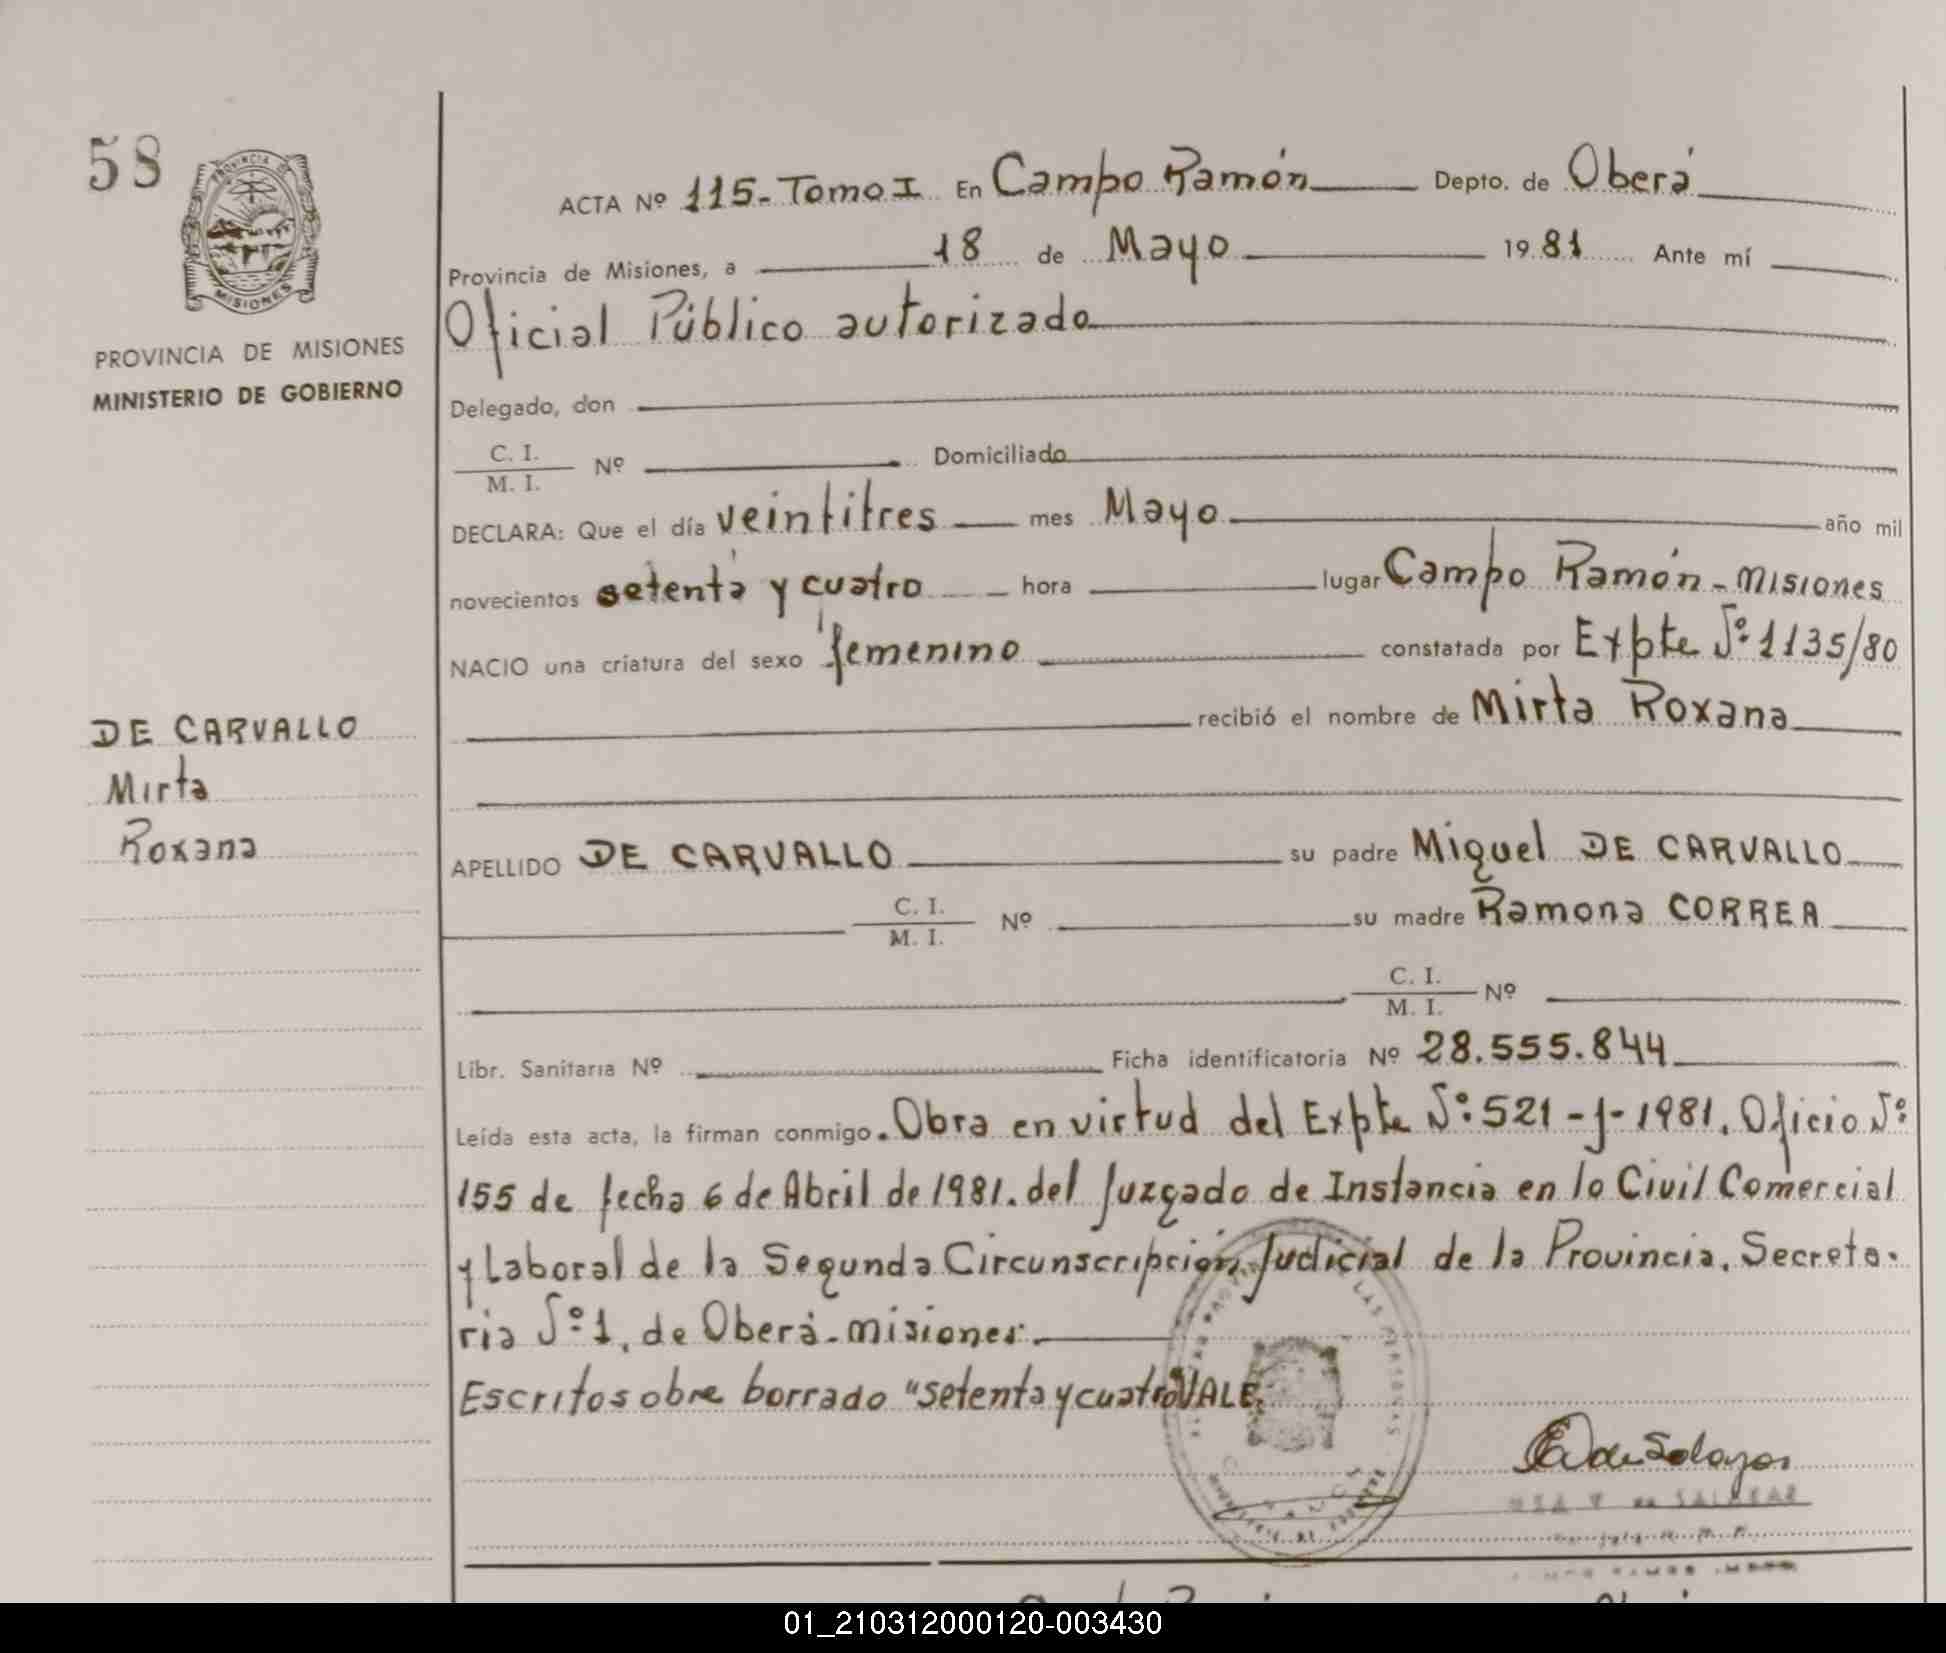 58
PROVINCIA DE
MISIONES
PROVINCIA DE MISIONES
MINISTERIO DE GOBIERNO
DE CARVALLO
Mirta
Roxana
ACTA Nº 115-Tomo I En Campo Ramón Depto. de Oberá
Provincia de Misiones, a 18 de Mayo 1981 Ante mí
Oficial Público autorizado
Delegado, don
C. I.
M. I. Nº Domiciliado
DECLARA: Que el día veintitres mes Mayo año mil
novecientos setenta y cuatro hora lugar Campo Ramón-Misiones
NACIO una criatura del sexo femenino constatada por Expte Nº 1135/80
recibió el nombre de Mirta Roxana
APELLIDO DE CARVALLO su padre Miguel DE CARVALLO
C. I.
M. I. Nº su madre Ramona CORREA
C. I.
M. I. Nº
Libr. Sanitaria Nº Ficha identificatoria Nº 28.555.844
Leída esta acta, la firman conmigo. Obra en virtud del Expte Nº 521-J-1981. Oficio Nº
155 de fecha 6 de Abril de 1981. del Juzgado de Instancia en lo Civil Comercial
y Laboral de la Segunda Circunscripción Judicial de la Provincia. Secreta-
ria Nº 1, de Oberá-Misiones.
Escrito sobre borrado "setenta y cuatro" VALE.
de SALAZAR
01_210312000120-003430